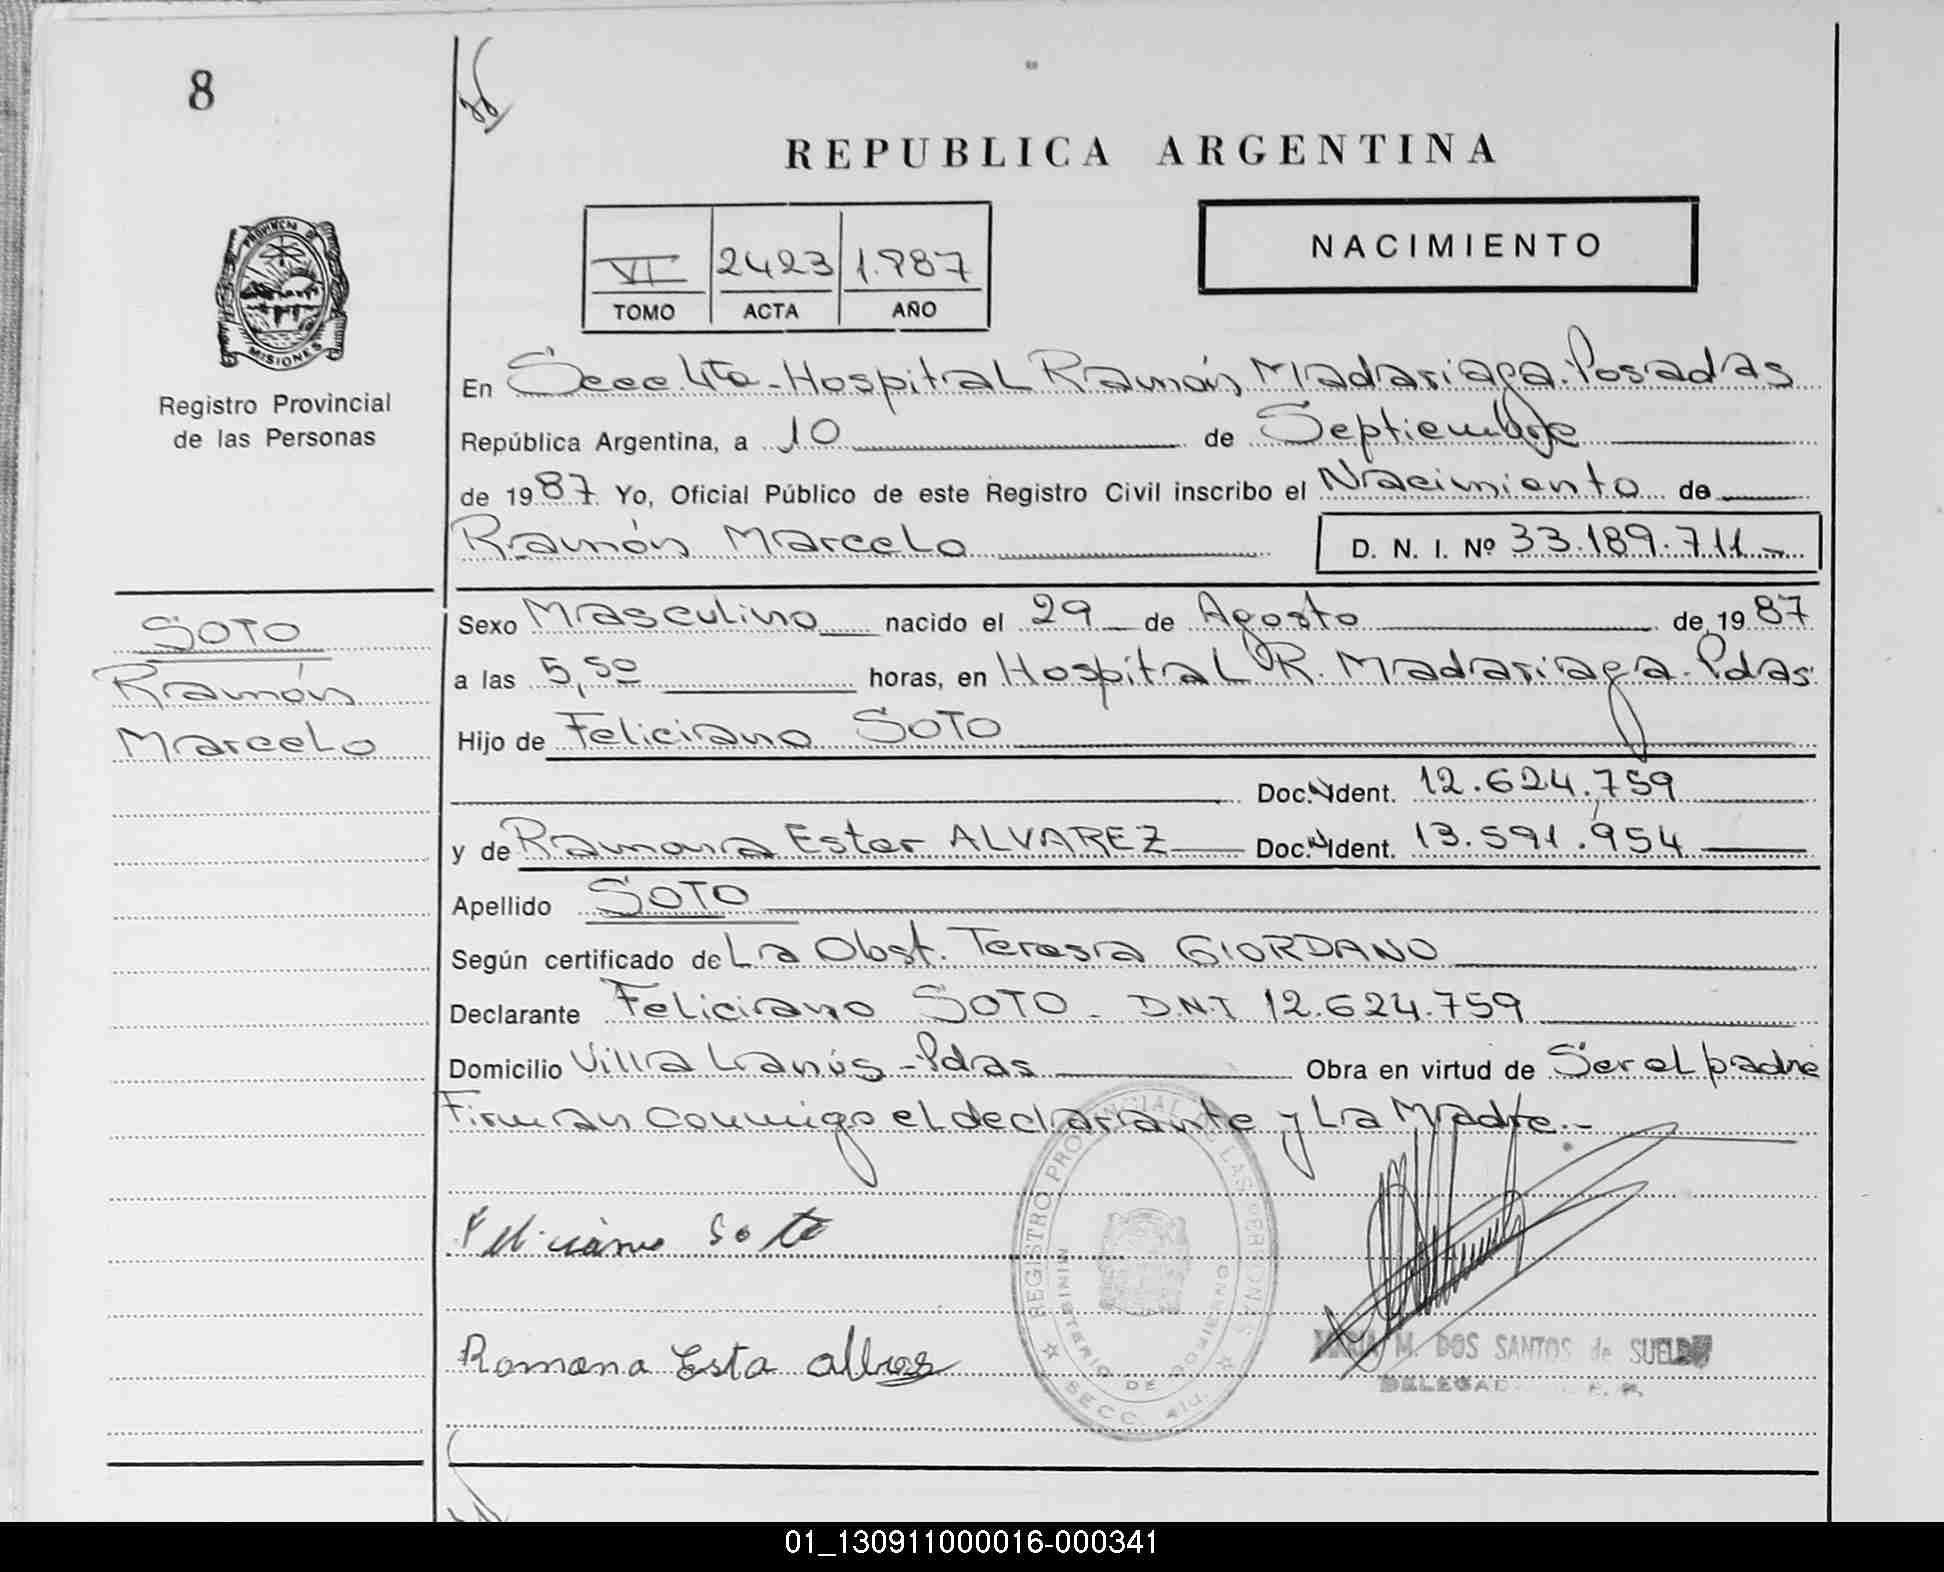 8
REPUBLICA ARGENTINA
NACIMIENTO
VI 2423 1.987
TOMO ACTA AÑO
PROVINCIA DE MISIONES
Registro Provincial
de las Personas
En Secc 4ta - Hospital Ramón Madariaga. Posadas
República Argentina, a 10 de Septiembre
de 1987. Yo, Oficial Público de este Registro Civil inscribo el Nacimiento de
Ramón Marcelo D. N. I. Nº 33.189.711.-
SOTO
Ramón
Marcelo
Sexo Masculino nacido el 29 de Agosto de 1987
a las 5,50 horas, en Hospital R. Madariaga. Pdas.
Hijo de Feliciano SOTO
Doc. N Ident. 12.624.759
y de Ramona Ester ALVAREZ Doc. N Ident. 13.591.954
Apellido SOTO
Según certificado de La Obst. Teresa GIORDANO
Declarante Feliciano SOTO - D.N.I 12.624.759
Domicilio Villa Lanús - Pdas Obra en virtud de Ser el padre
Firman conmigo el declarante y La Madre.-
Feliciano Soto
REGISTRO PROVINCIAL DE LAS PERSONAS
MINISTERIO DE GOBIERNO
SECC. 4ta.
Romona Esta
M. DOS SANTOS de SUELDO
01_130911000016-000341